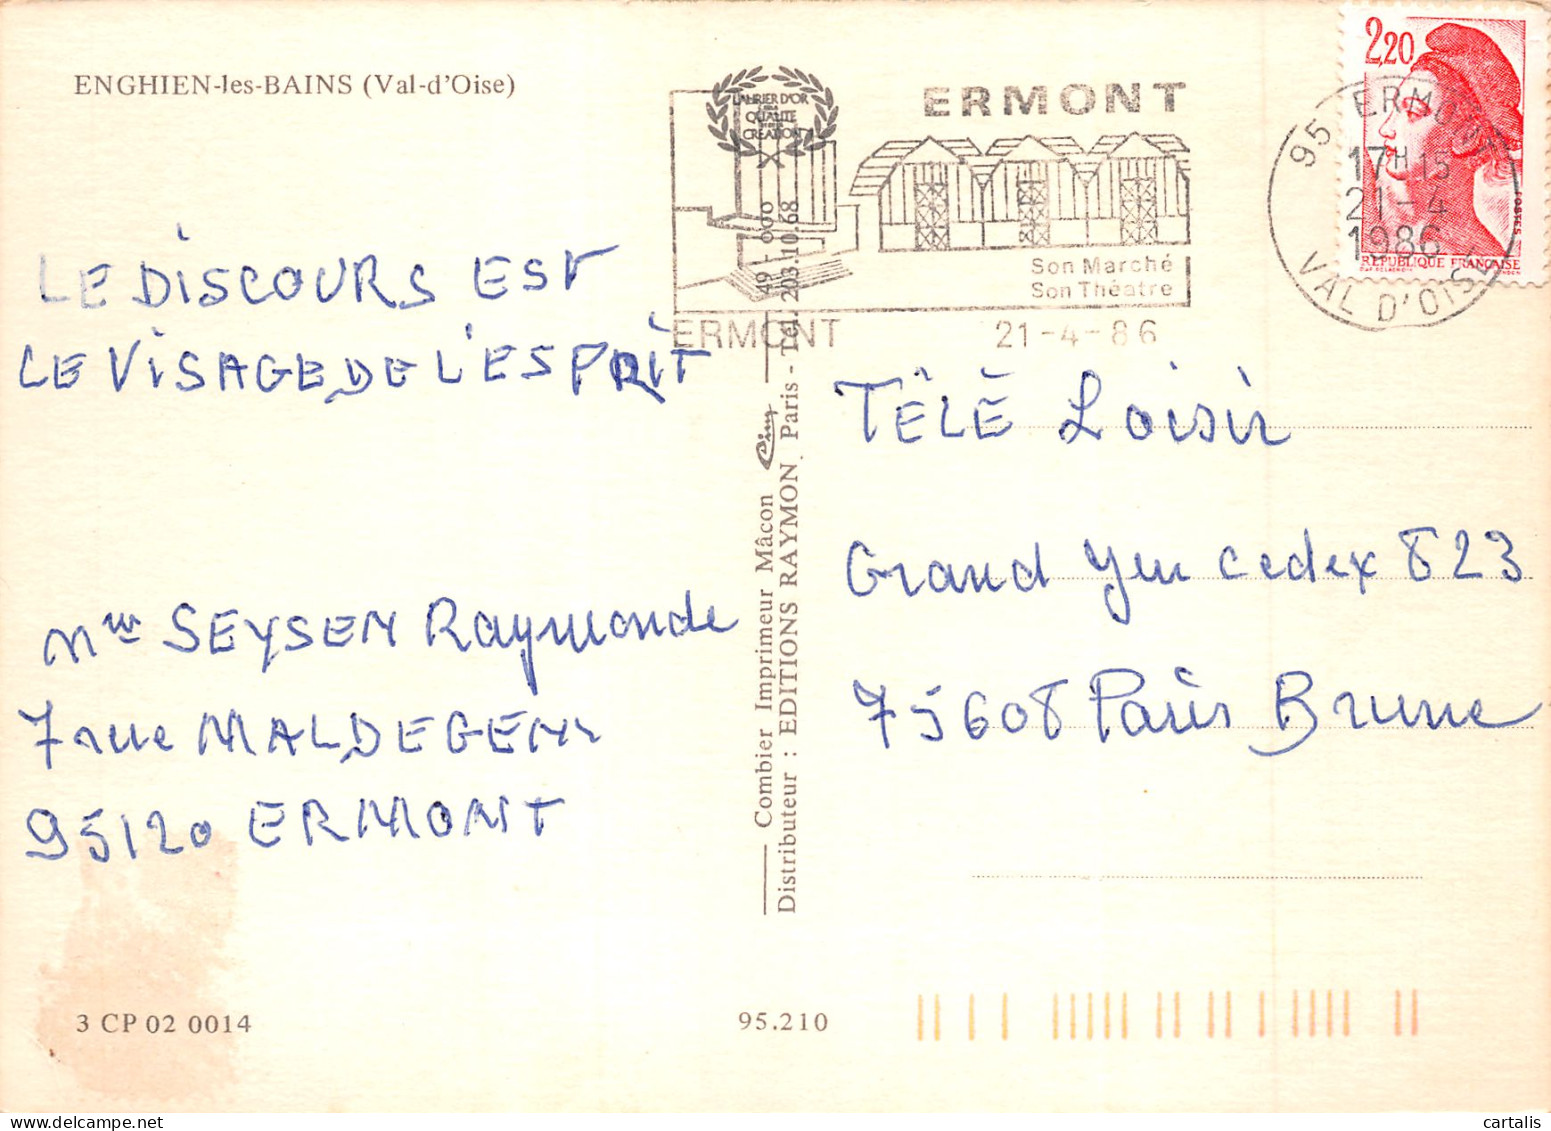 ENGHIEN-les-BAINS (Val-d'Oise)
LAURIER D'OR
QUALITE
CREATION
ERMONT
Son Marché
Son Théatre
ERMONT
21-4-86
95 ERMONT
17H15
21-4
1986
VAL D'OISE
2,20
POSTES
REPUBLIQUE FRANÇAISE
LE DISCOURS EST
LE VISAGE DE L'ESPRIT
Mme SEYSEN Raymonde
7 rue MALDEGEM
95120 ERMONT
49-000
Combier Imprimeur Mâcon Cim
Distributeur : EDITIONS RAYMON, Paris - Tél. 203.10.68
TÉLÉ Loisir
Grand Yeu Cedex 823
75608 Paris Brune
3 CP 02 0014
95.210
cartalis